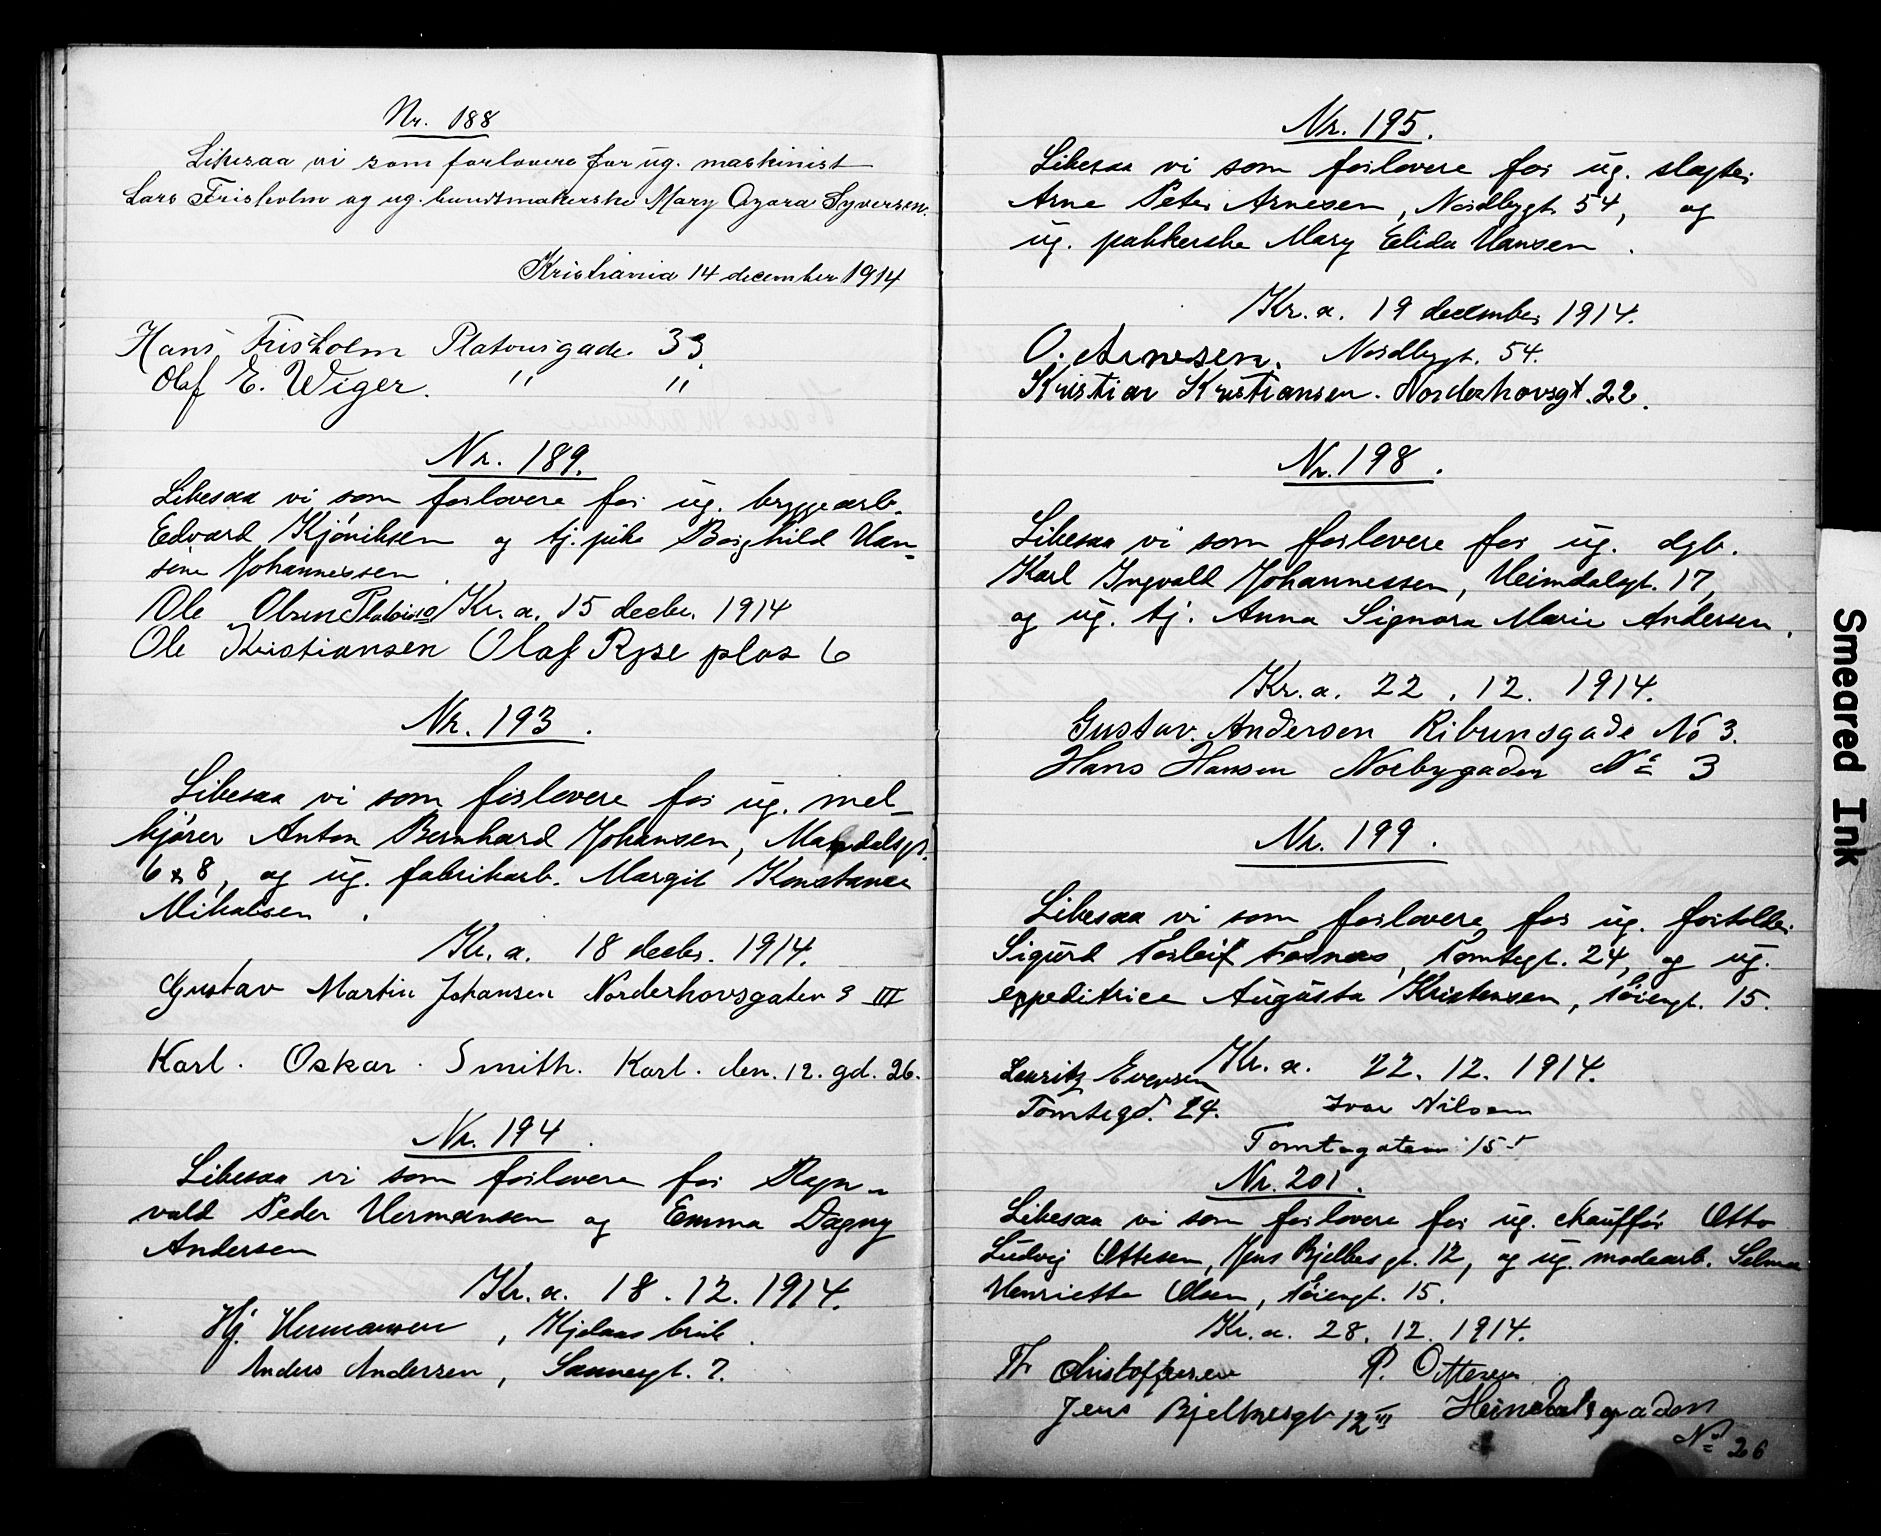 Nr. 188
Likesaa vi som forlovere for ug. maskinist
Lars Frisholm og ug. bundtmakerske Mary Azora Syversen.
Kristiania 14 december 1914
Hans Frisholm Platousgade. 33.
Olaf E. Wiger. " "
Nr. 189.
Likesaa vi som forlovere for ug. bryggearb.
Edvard Kjøniksen og tj. pike Borghild Han-
sine Johannessen.
Ole Olsen Kr.a. 15 decbr. 1914
Ole Kristiansen Olaf Ryse plas 6
Nr. 193.
Likesaa vi som forlovere for ug. mel-
kjører Anton Bernhard Johansen, Mandalsgt.
6 & 8, og ug. fabrikarb. Margit Konstance
Mikalsen.
Kr.a. 18 decbr. 1914.
Gustav Martin Johansen Norderhovsgaten 9 III
Karl. Oskar. Smith. Karl. den. 12. gd. 26.
Nr. 194.
Likesaa vi som forlovere for Ragn-
vald Peder Hermansen og Emma Dagny
Andersen
Kr.a. 18.12.1914.
Hj. Hermansen, Kjelsaas bruk.
Anders Andersen, Sannergt. 7.
Nr. 195.
Likesaa vi som forlovere for ug. slagter
Arne Peter Arnesen, Nordbygt. 54, og
ug. pakkerske Mary Elida Hansen.
Kr.a. 19 december 1914.
O. Arnesen. Nordbygt. 54.
Kristian Kristiansen. Norderhovsgt. 22.
Nr. 198.
Likesaa vi som forlovere for ug. dgb.
Karl Ingvald Johannessen, Heimdalsgt. 17,
og ug. tj. Anna Signora Marie Andersen.
Kr.a. 22.12.1914.
Gustav. Andersen Ribunsgade No 3.
Hans Hansen Norbygaden No 3
Nr. 199.
Likesaa vi som forlovere for ug. fortolder
Sigurd Torleif Fosnæs, Tomtegt. 24, og ug.
expeditrice Augusta Kristensen, Tøiengt. 15.
Kr.a. 22.12.1914.
Lauritz Evensen
Tomtegd. 24. Ivar Nilsen
Tomtegaten 15
Nr. 201.
Likesaa vi som forlovere for ug. chauffør Otto
Ludvig Ottesen, Jens Bjelkes gt. 12, og ug. modearb. Selma
Henriette Olsen, Tøiengt. 15.
Kr.a. 28.12.1914.
Th Christophersen P. Ottesen
Jens Bjelkesgt 12 III Heimdalsgaden
No 26
Smeared Ink